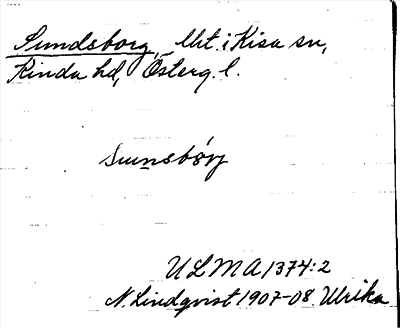 Sundsborg, lht. i Kisa sn,
Kinda hd, Österg. l.
Sunnsbórj
ULMA 1374:2
N. Lindqvist 1907-08. Ulrika